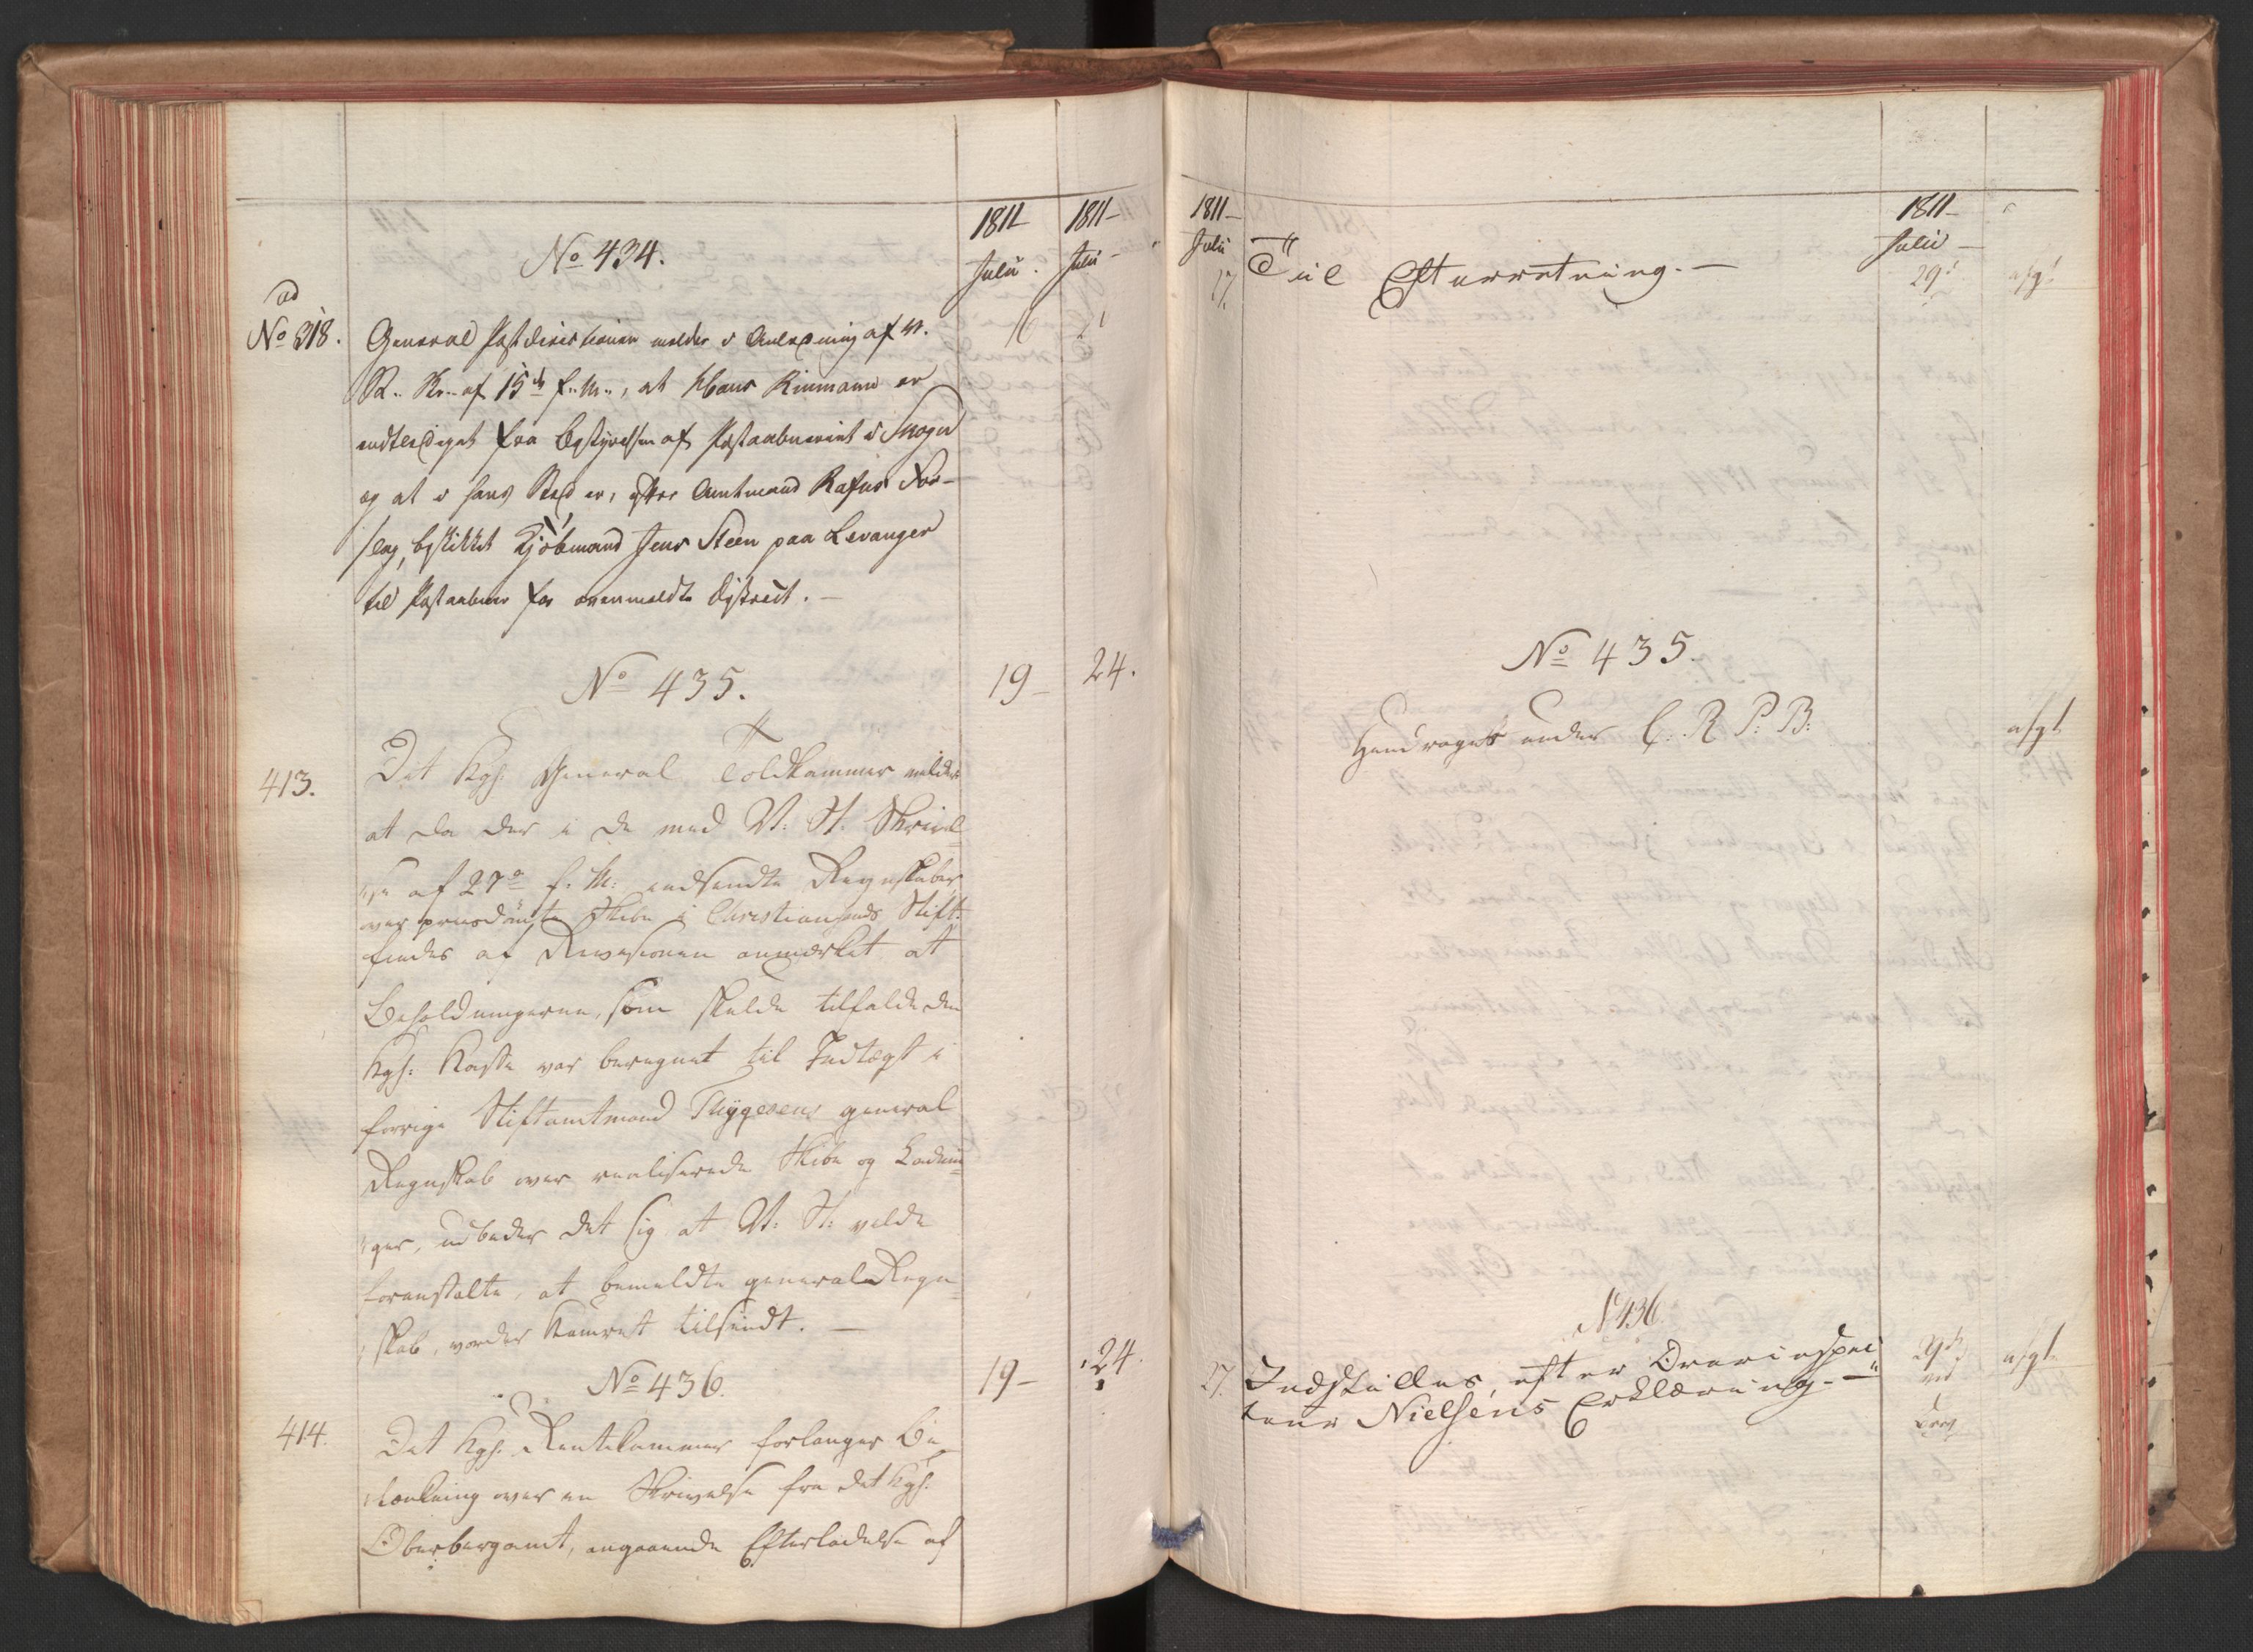 1811
1811-
No 434.
Julii.
Julii -
ad
No 318.
General Postdirectionen melder i Anledning af V.
16
R. Kr. af 15de f. M., at Hans Rinmann er
entlediget fra Bestyrelsen af Postaabneriet i Snogen
og at i hans Sted er, efter Amtmand Rafns For-
slag, beskikket Kjöbmand Jens Steen paa Levanger
til Postaabner for ovenmeldte District. -
No 435.
19-
24.
413.
Det Kgl. General Toldkammer melder
at da der i de med V: St: Skrivel-
se af 27de f. M: indsendte Regnskaber
over priisdömte Skibe i Christiansands Stift:
findes af Revisionen anmærket at
Beholdningerne, som skulde tilfalde den
Kgl: Kasse var beregnet til Indtægt i
forrige Stiftamtmand Thygesens general
Regnskab over realiserede Skibe og Ladnin-
ger, udbeder det sig at V: St: vilde
foranstalte, at bemeldte general Regn-
skab, vorder Kamret tilsendt. -
No 436.
19-
24.
414.
Det Kgl. Rentekammer forlanger Be-
tænkning over en Skrivelse fra det Kgl.
Oberbergamt, angaaende Efterladelse af
1811-
Julii
17.
Til Efterretning. -
1811-
Julii -
29d
afg!
No 435.
Hendraget under C. R. P. B:
afgt
No 436.
27.
Indstilles, efter Overinspec-
teur Nielsens Erklæring. -
29d
afgt.